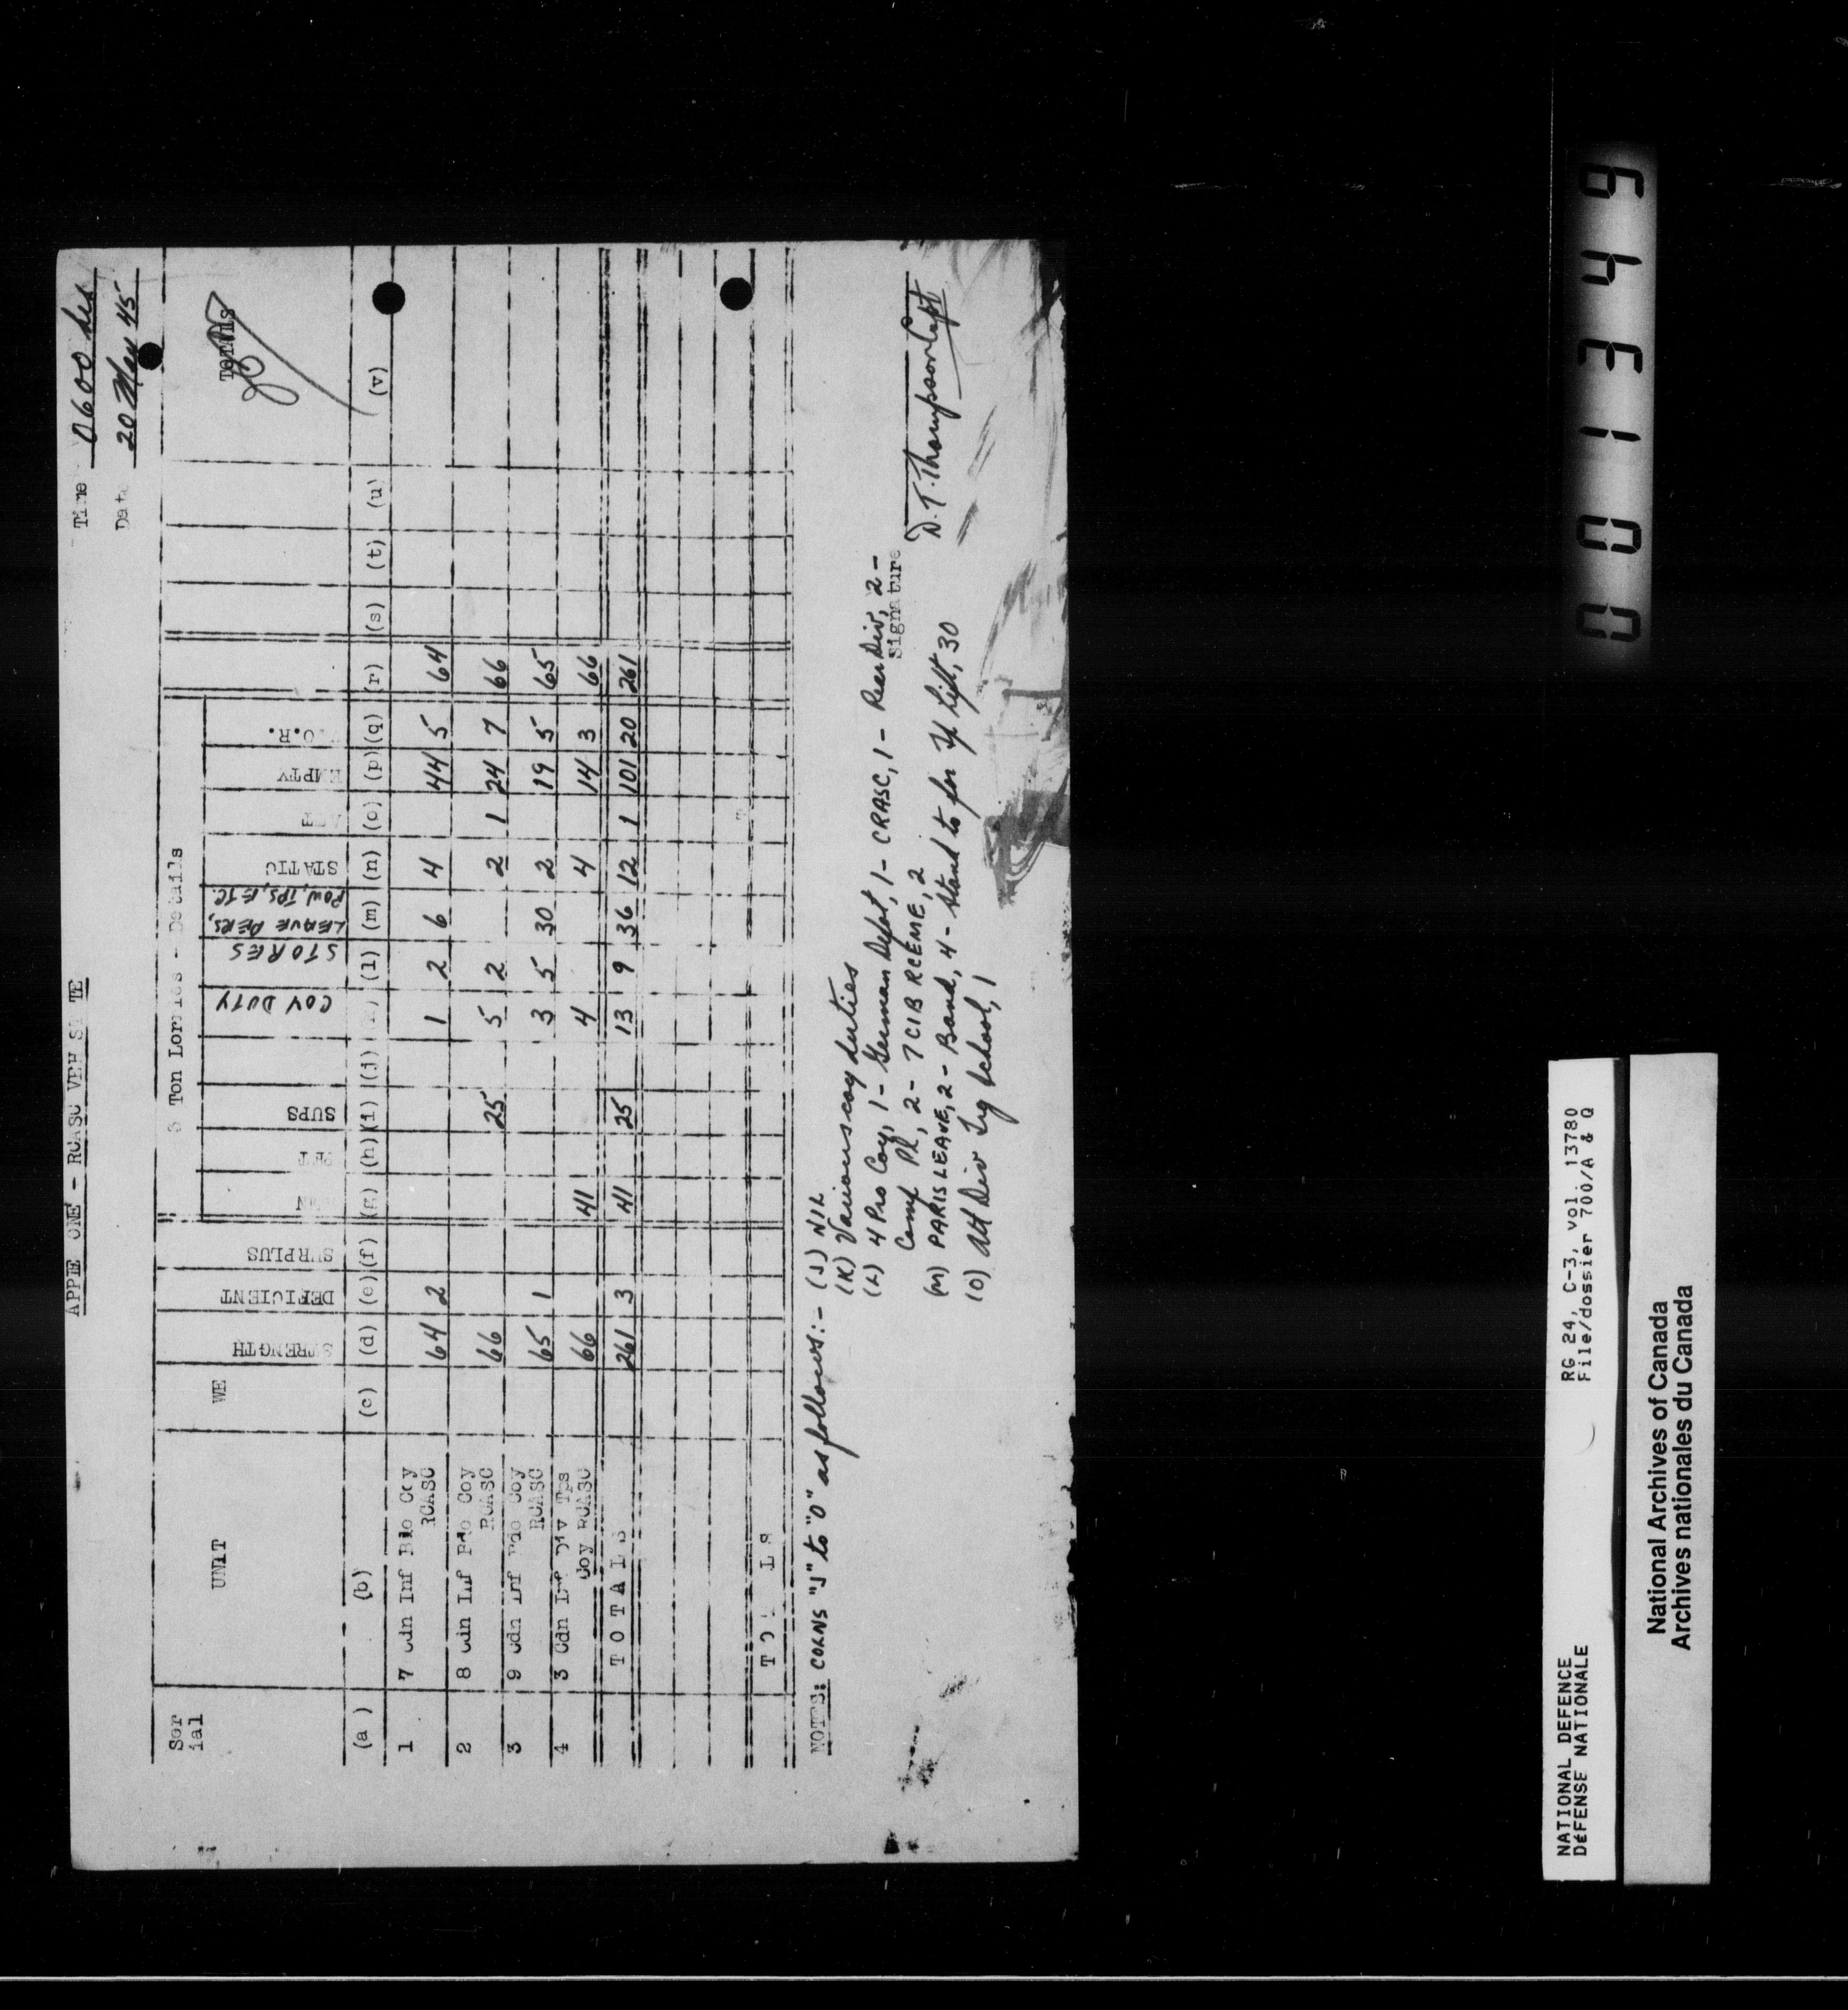 APPLE ONE - RCASC VEH STATE
Time 0600 hrs
Date 20 May 45
3 Ton Lorries - Details
Ser UNIT WE STRENGTH DEFICIENT SURPLUS PET SUPS COY DUTY STORES LEAVE PERS, POW, TPS, ETC. STATIC EMPTY V.O.R.
ial
(a) (b) (c) (d) (e) (f) (g) (h) (i) (j) (l) (m) (n) (o) (p) (q) (r) (s) (t) (u) (v)
1 7 Cdn Inf Bde Coy RCASC 64 2 1 2 6 4 44 5 64
2 8 Cdn Inf Bde Coy RCASC 66 25 5 2 2 1 24 7 66
3 9 Cdn Inf Bde Coy RCASC 65 1 3 5 30 2 19 5 65
4 3 Cdn Inf Div Tps Coy RCASC 66 41 4 4 14 3 66
TOTALS 261 3 41 25 13 9 36 12 1 101 20 261
TOTALS
NOTE: COLNS "J" to "O" as follows:- (J) NIL
(K) Various coy duties
(L) 4 Pro Coy, 1 - German Depot, 1 - CRASC, 1 - Rear Div, 2 -
Comp Pl, 2 - 7 CIB RCEME, 2
(M) PARIS LEAVE, 2 - Band, 4 - Stand to for lift, 30
(O) Att Div Trg School, 1
Signature
D.T. Thompson Capt
001349
NATIONAL DEFENCE RG 24, C-3, vol. 13780
DÉFENSE NATIONALE File/dossier 700/A & Q
National Archives of Canada
Archives nationales du Canada